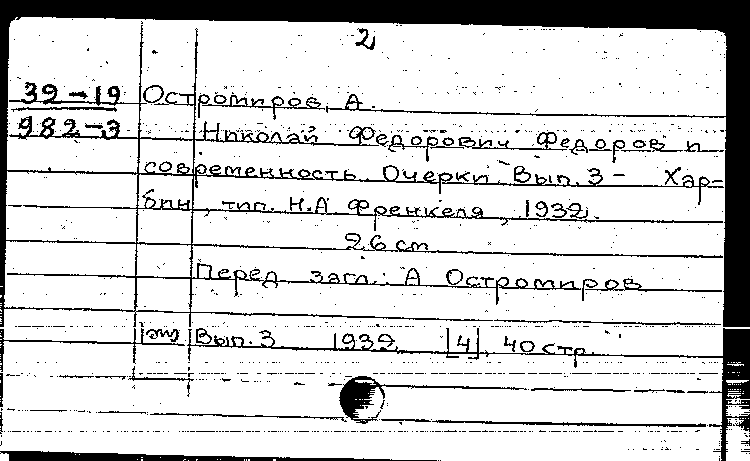 2
39-19 Остромиров, А.
982-3 Николай Федорович Федоров и
современность. Очерки. Вып. 3 - Хар-
бин, тип. Н.А Френкеля, 1932.
26 cm
Перед загл.: А Остромиров
Вып. 3 1932, [4], 40 стр.